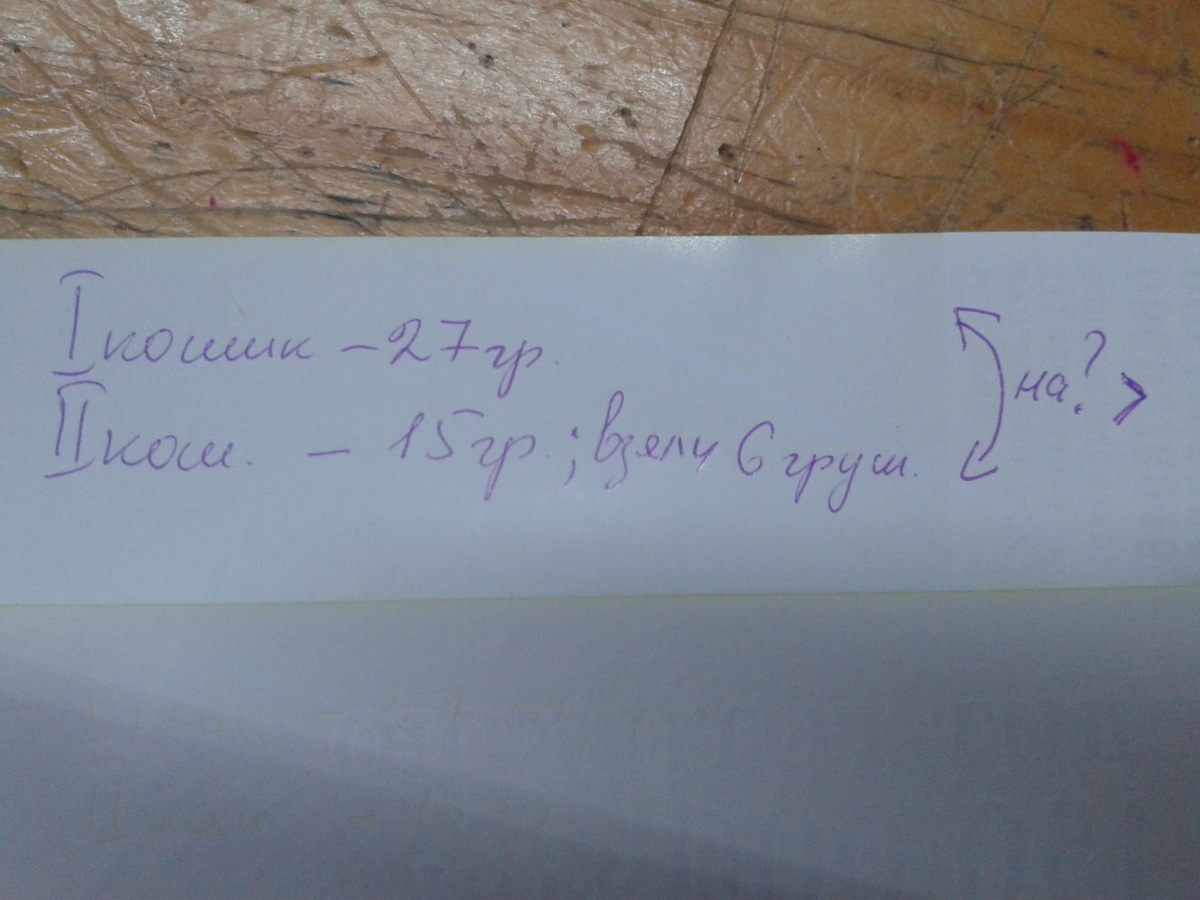 I кошик – 27 гр.
II кош. – 15 гр.; взяли 6 груш.
на ? >